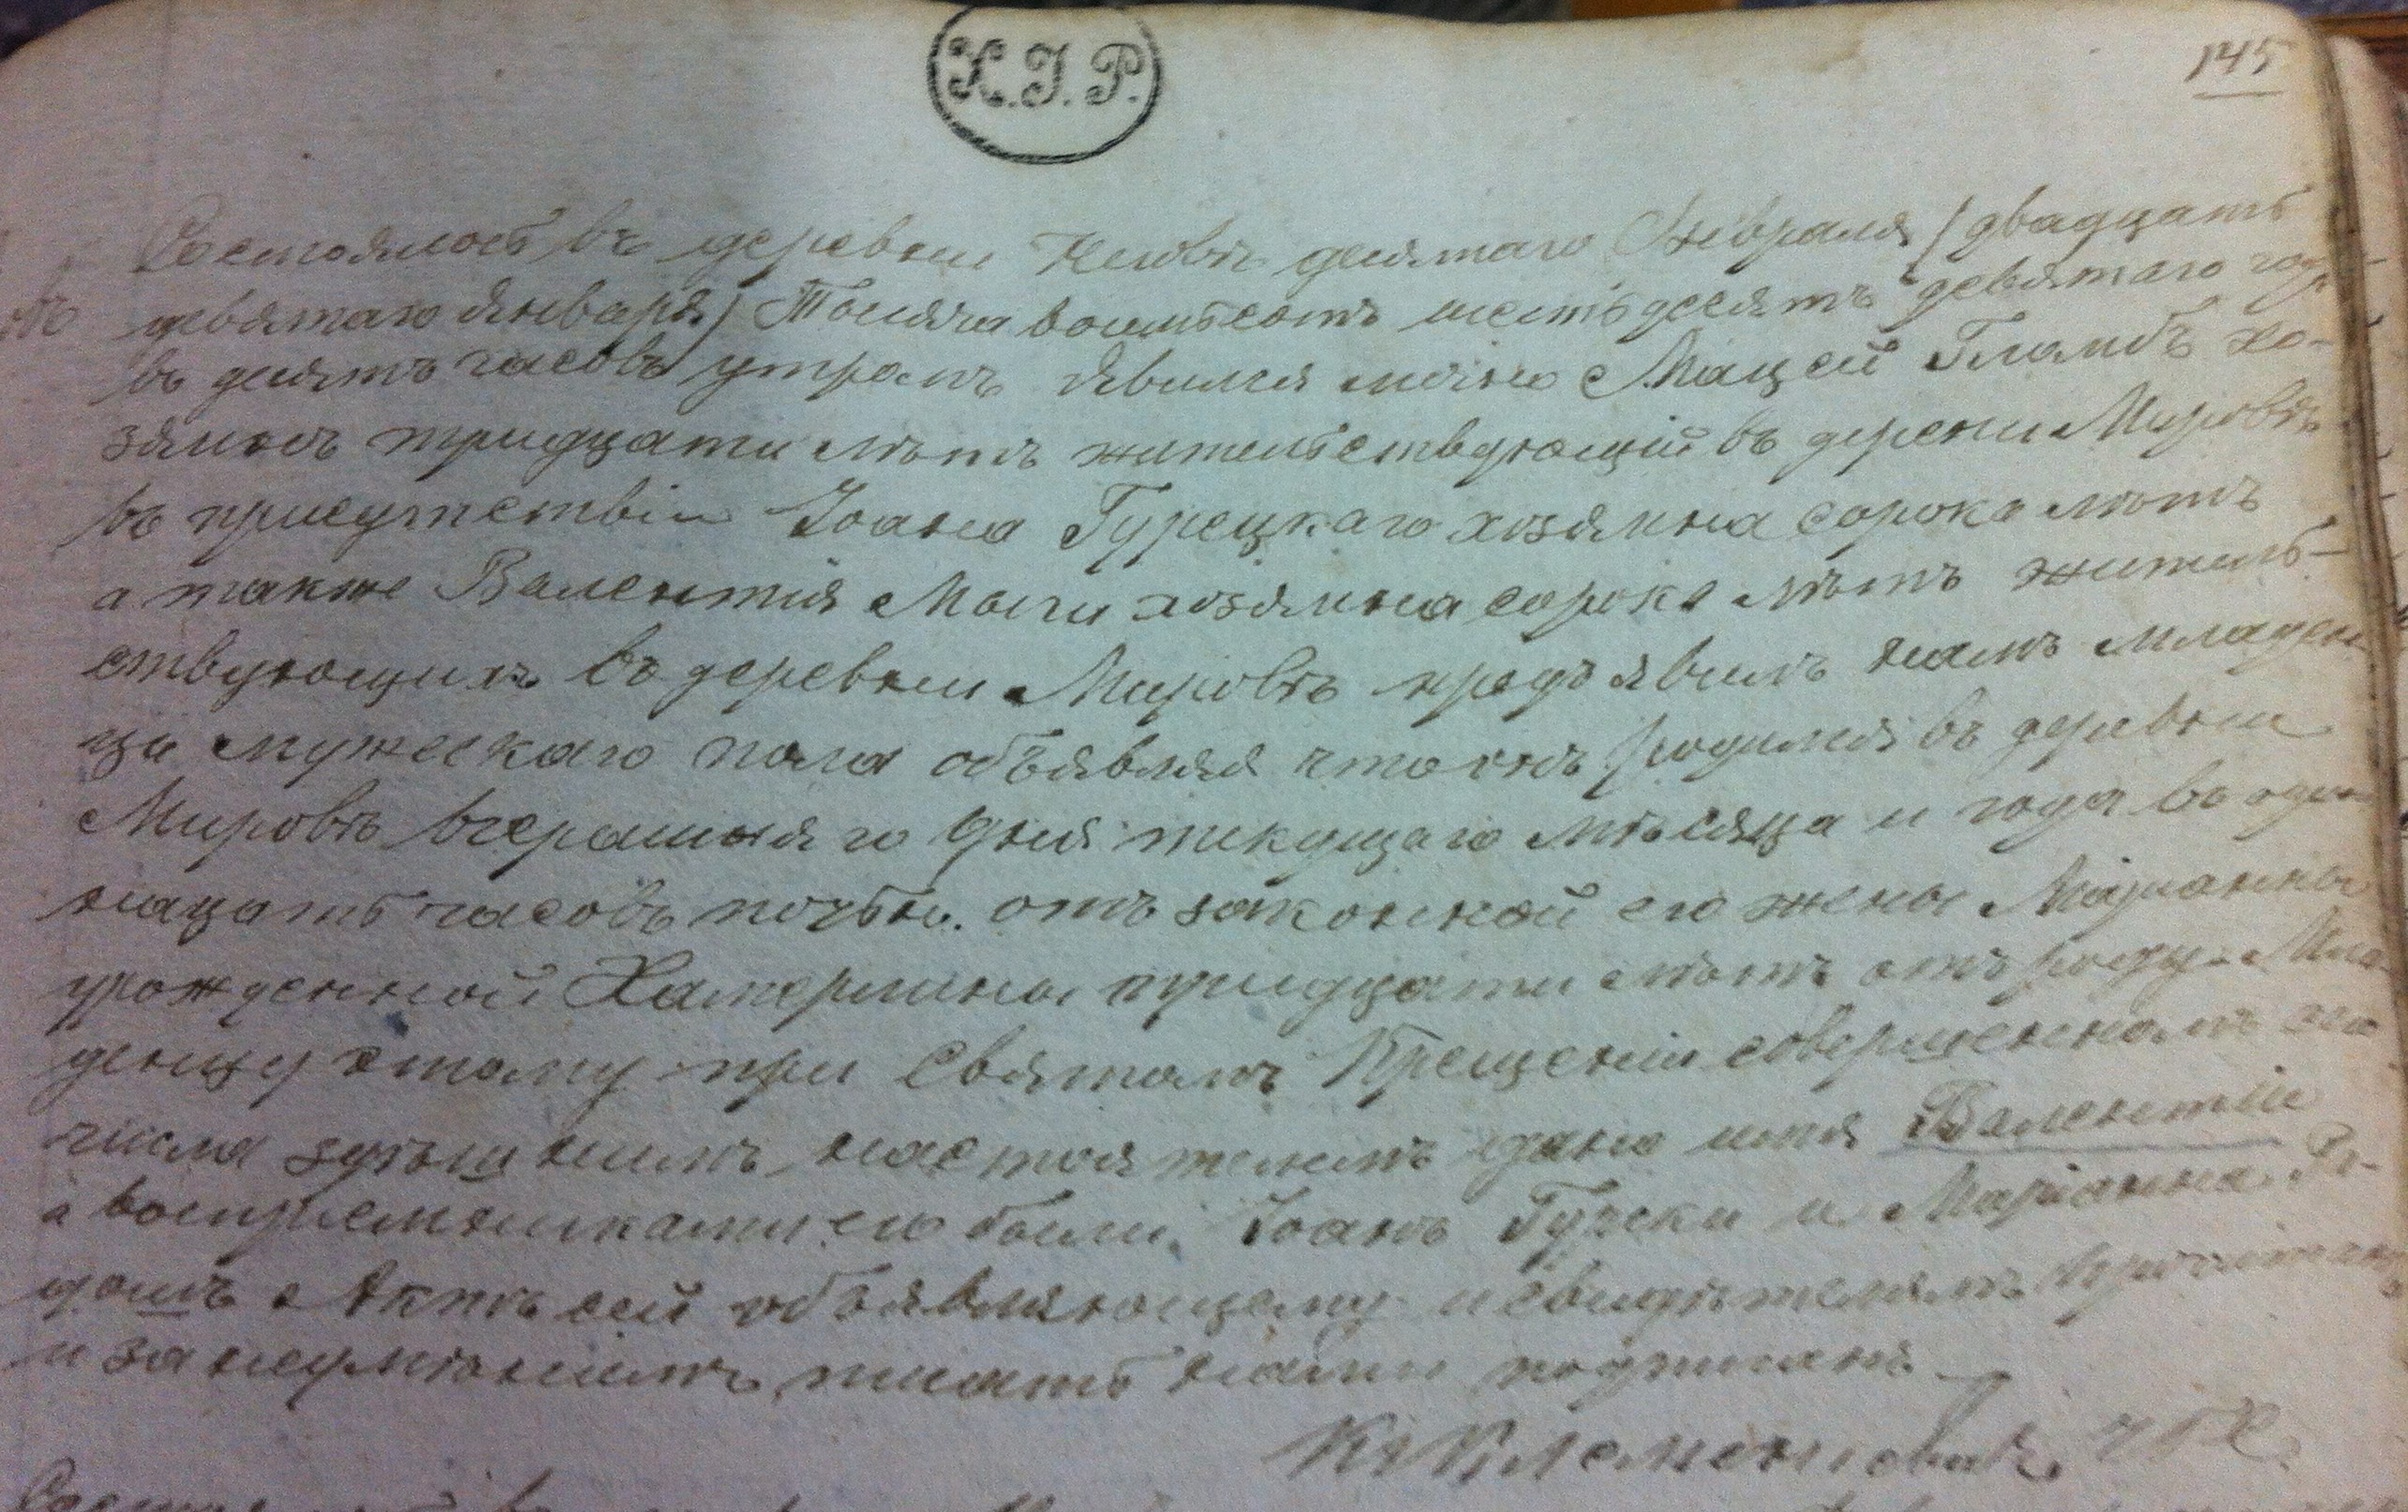 К.І.Р.
145
Состоялось въ деревни десятаго Февраля / двадцать
девятаго Января) Тысяча восемьсотъ шестьдесятъ девятаго года
въ десять часовъ утромъ явился лично Мацей Гломбъ хо-
зяинъ тридцати лѣтъ жительствующій въ дерени Мировѣ
въ присутствіи Іоана Гурецкаго хозяина сорока лѣтъ
а также Валентія хозяина сорока лѣтъ житель-
ствующихъ въ деревни Мировѣ предъявилъ намъ младен
ца мужескаго пола объявляя что онъ родился въ деревни
Мировѣ вчерашняго дня текущаго мѣсяца и года въ оди
нацать часовъ ночью. отъ законной его жены Маріанны
урожденной тридцати лѣтъ отъ роду. Мла
денцу этому при Святомъ Крещеніи совершенномъ сего
числа здѣшнимъ настоятелемъ дано имя Валентій
а воспріемниками его были Іоанъ Гурски и Маріанна
Актъ сей объявляющему и свидѣтелямъ прочитанъ
и за неумѣніемъ писать нами подписанъ